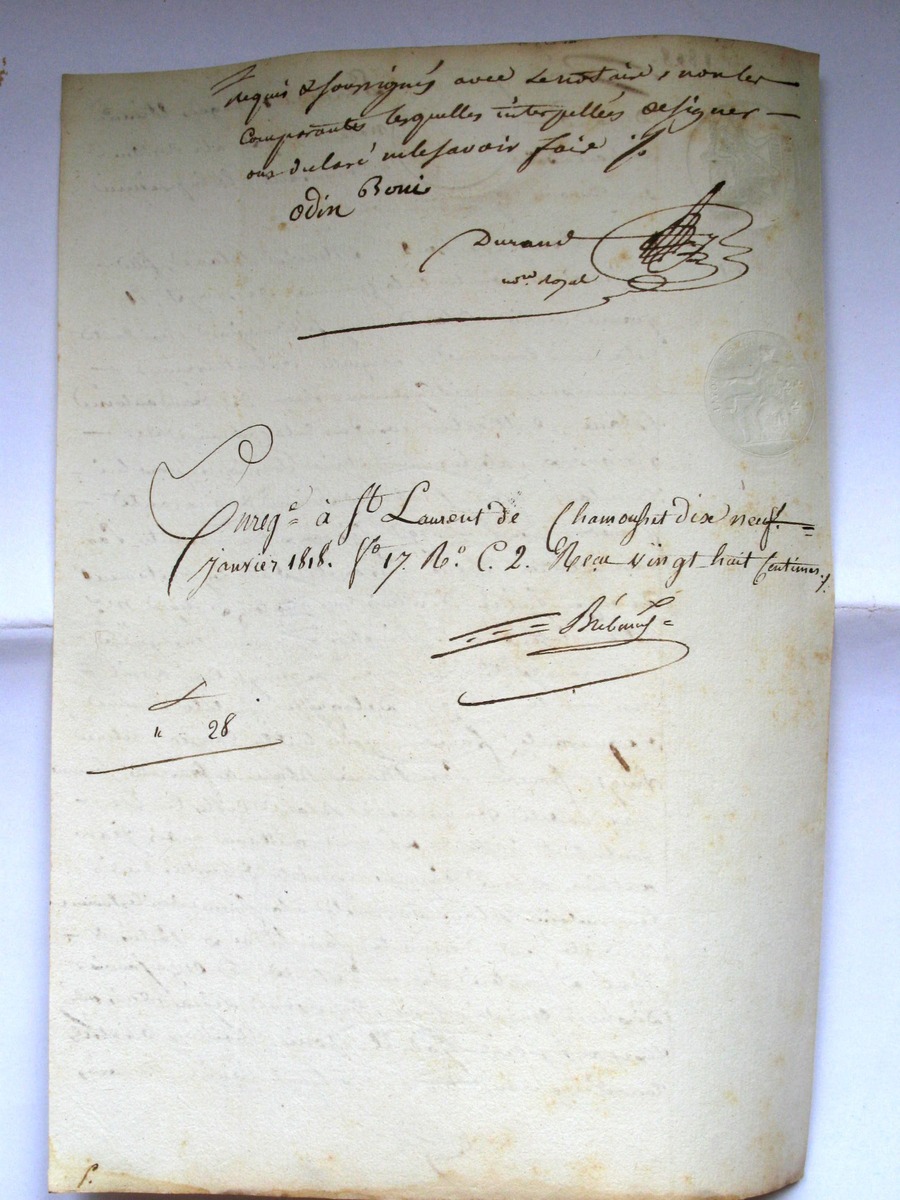 requis & soussignés avec le notaire, non les
comparantes lesquelles interpellées de signer —
ont declaré ne le savoir faire ./.
odin Boni
Durand
nore. royal
Enrege. à St Laurent de Chamousset dix neuf =
janvier 1818. fo 17. Ro. C. 2. Reçu vingt-huit Centimes ./.
" 28